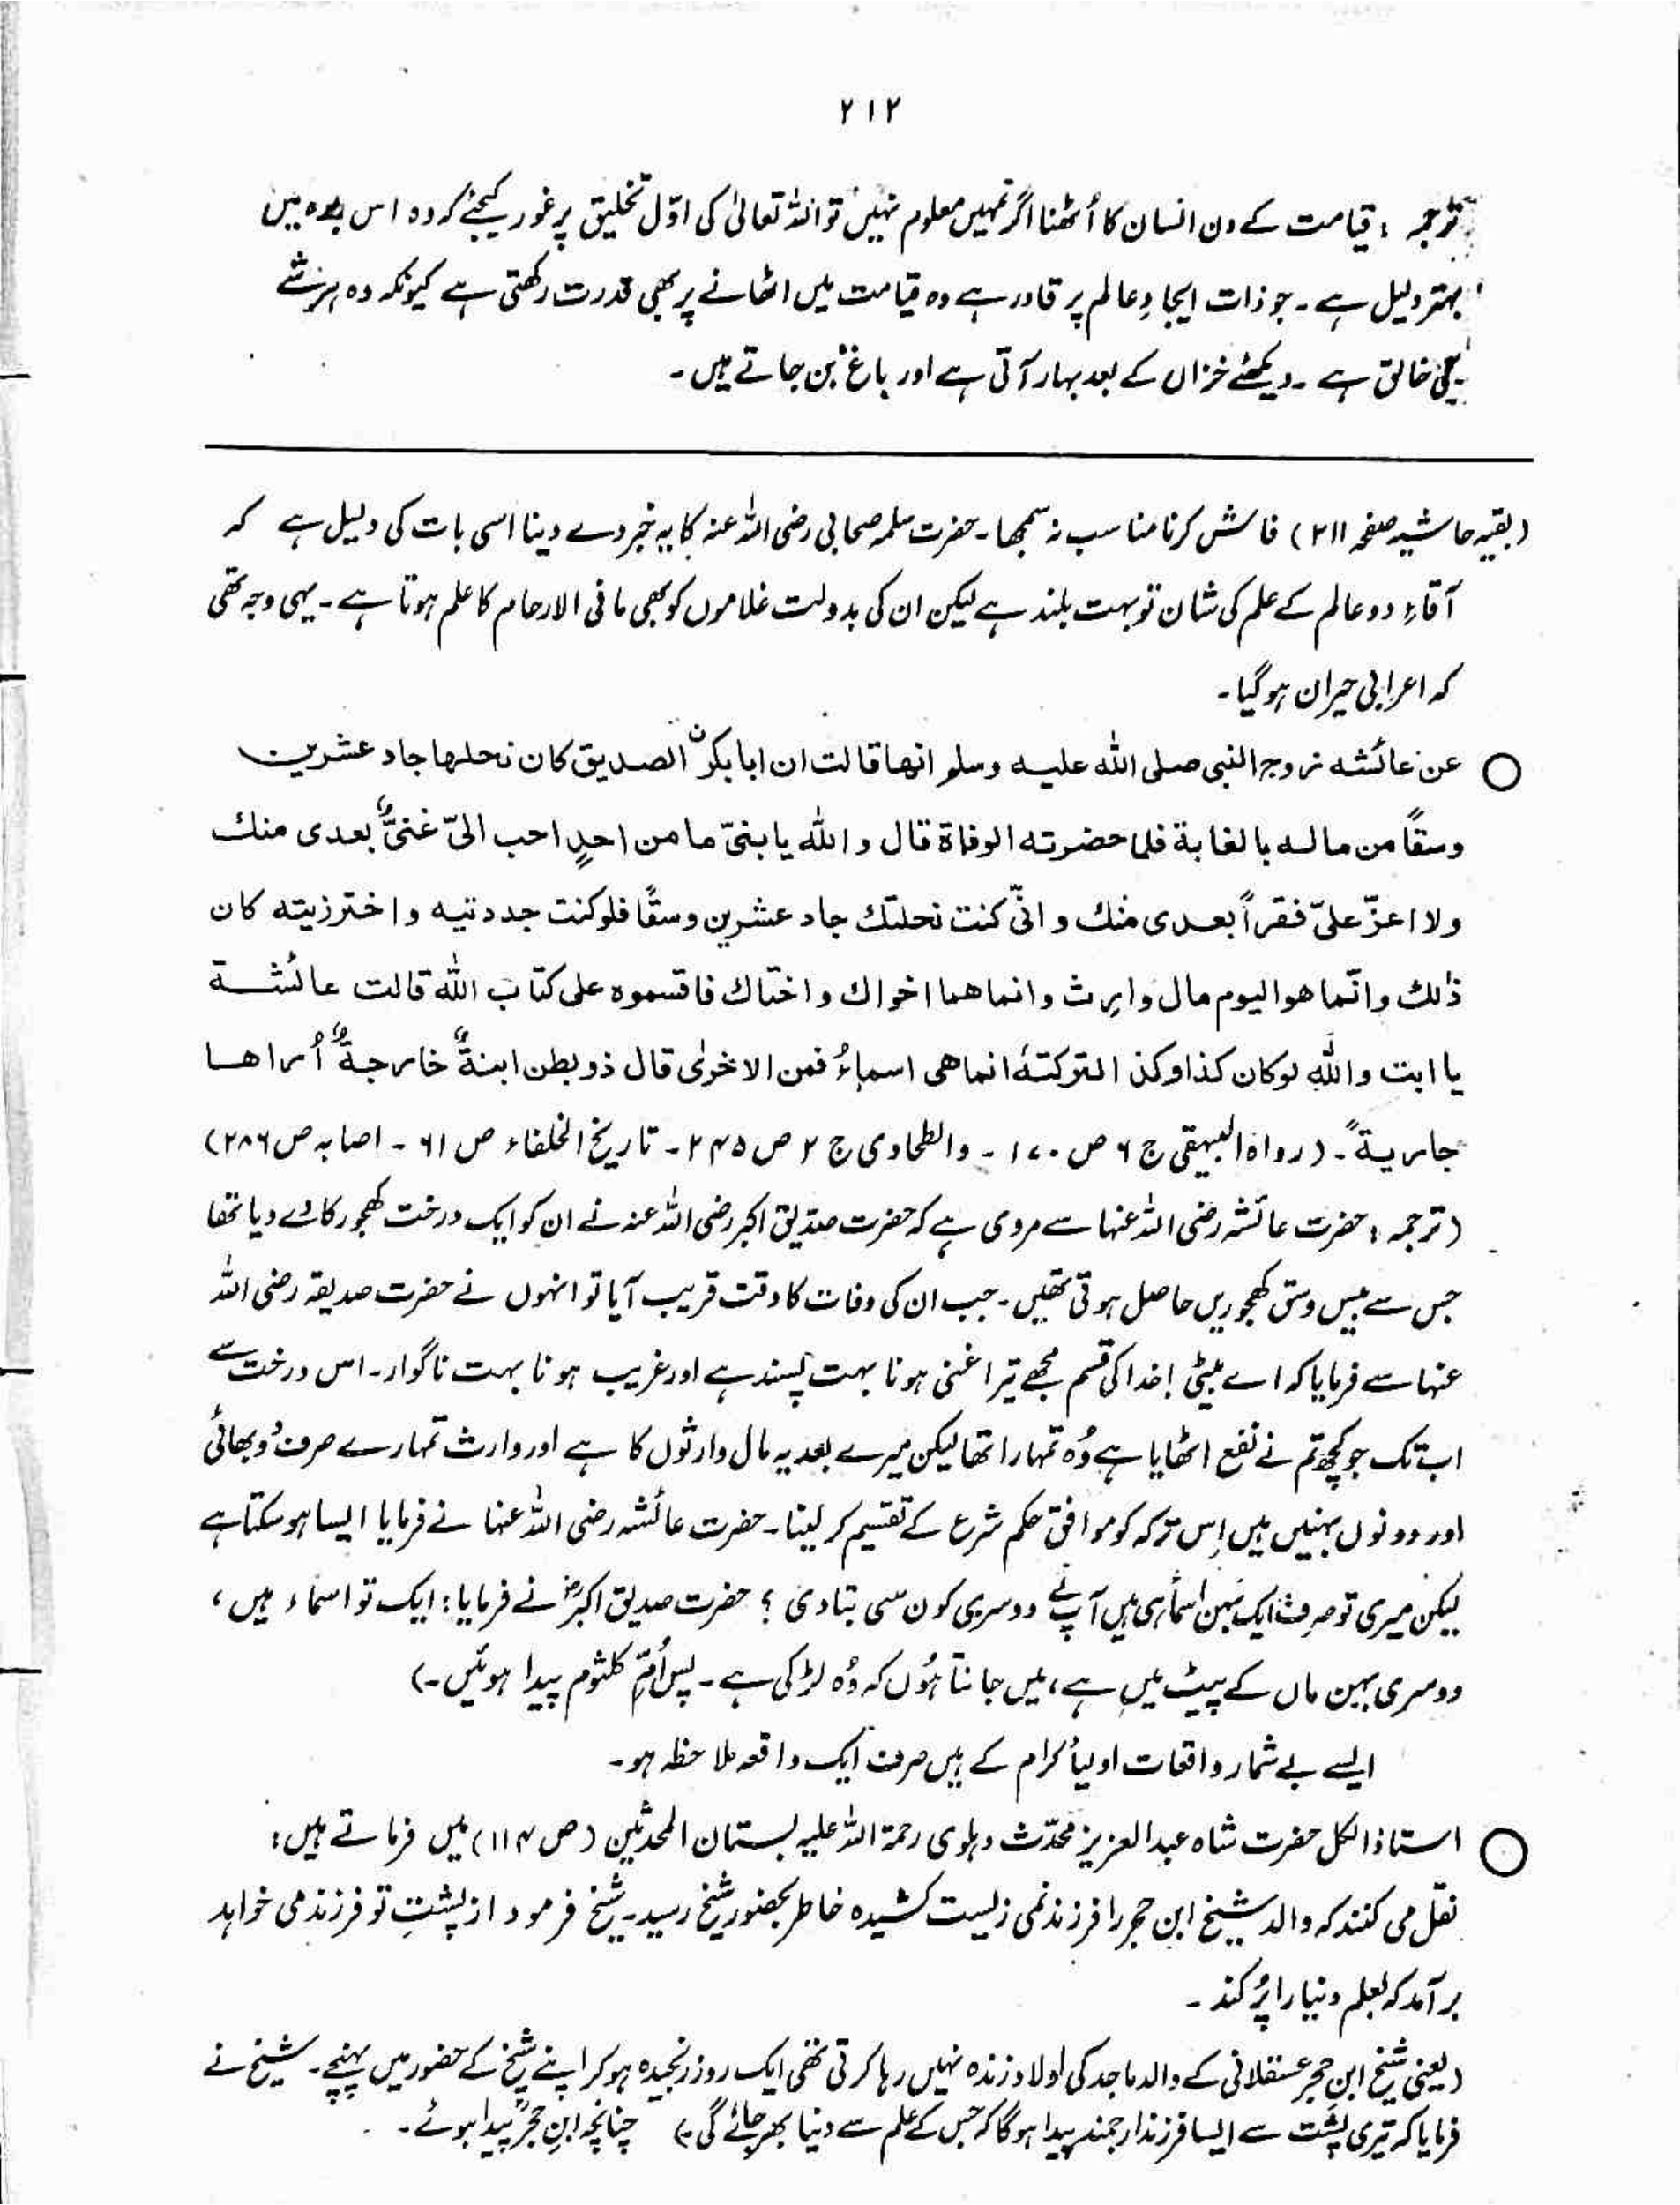 ۲۱۲
ترجمہ : قیامت کے دن انسان کا اُٹھنا اگر تمہیں معلوم نہیں تو اللہ تعالیٰ کی اوّل تخلیق پر غور کیجئے کہ وہ اس بارہ میں
بہتر دلیل ہے ۔ جو ذات ایجادِ عالم پر قادر ہے وہ قیامت میں اٹھانے پر بھی قدرت رکھتی ہے کیونکہ وہ ہر شے
کی خالق ہے ۔ دیکھئے خزاں کے بعد بہار آتی ہے اور باغ بن جاتے ہیں ۔
(بقیہ حاشیہ صفحہ ۲۱۱) فاش کرنا مناسب نہ سمجھا ۔ حضرت سلمہ صحابی رضی اللہ عنہ کا یہ خبر دے دینا اسی بات کی دلیل ہے کہ
آقاءِ دو عالم کے علم کی شان تو بہت بلند ہے لیکن ان کی بدولت غلاموں کو بھی مافی الارحام کا علم ہوتا ہے ۔ یہی وجہ تھی
کہ اعرابی حیران ہو گیا ۔
○ عن عائشہ زوجہ النبی صلی اللہ علیہ وسلم انہا قالت ان ابا بکرؓ الصدیق کان نحلہا جاد عشرین
وسقاً من مالہ بالغابة فلما حضرتہ الوفاة قال واللہ یا بنیّ ما من احدٍ احب الیّ غنیٌّ بعدی منك
ولا اعزّ علیّ فقراً بعدی منك و انّی کنت نحلتك جاد عشرین وسقًا فلو کنت جددتیہ واخترزیتہ کان
ذٰلك وانّما ھوالیوم مال وارث وانما ھما اخواك واختاك فاقسموہ علی کتاب اللہ قالت عائشة
یا ابت واللهِ لوکان کذا وکذا لترکتہٗ انما ھی اسماءُ فمن الاخرٰی قال ذو بطن ابنةٌ خارجةٌ اُراھا
جاریةً ۔ (رواہ البیہقی ج ۶ ص ۱۷۰ ۔ والطحاوی ج ۲ ص ۲۴۵ ۔ تاریخ الخلفاء ص ۶۱ ۔ اصابہ ص ۲۸۶)
(ترجمہ : حضرت عائشہ رضی اللہ عنہا سے مروی ہے کہ حضرت صدیق اکبر رضی اللہ عنہ نے ان کو ایک درخت کھجور کا دے دیا تھا
جس سے بیس وسق کھجوریں حاصل ہوتی تھیں ۔ جب ان کی وفات کا وقت قریب آیا تو انہوں نے حضرت صدیقہ رضی اللہ
عنہا سے فرمایا کہ اے بیٹی ! خدا کی قسم مجھے تیرا غنی ہونا بہت پسند ہے اور غریب ہونا بہت ناگوار ۔ اس درخت سے
اب تک جو کچھ تم نے نفع اٹھایا ہے وُہ تمہارا تھا لیکن میرے بعد یہ مال وارثوں کا ہے اور وارث تمہارے صرف دُو بھائی
اور دونوں بہنیں ہیں اِس ترکہ کو موافق حکم شرع کے تقسیم کر لینا ۔ حضرت عائشہ رضی اللہ عنہا نے فرمایا ایسا ہو سکتا ہے
لیکن میری تو صرف ایک بہن اسماء ہی ہیں آپ نے دوسری کون سی بتا دی ؟ حضرت صدیق اکبرؓ نے فرمایا : ایک تو اسماء ہیں ،
دوسری بہن ماں کے پیٹ میں ہے ، میں جانتا ہُوں کہ وُہ لڑکی ہے ۔ پس اُمِّ کلثوم پیدا ہوئیں ۔)
ایسے بے شمار واقعات اولیأ کرام کے ہیں صرف ایک واقعہ ملاحظہ ہو ۔
○ استاذ الکل حضرت شاہ عبدالعزیز محدّث دہلوی رحمۃ اللہ علیہ بستان المحدثین (ص ۱۱۴) میں فرماتے ہیں :
نقل می کنند کہ والد شیخ ابن حجر را فرزند نمی زیست کشیدہ خاطر بحضور شیخ رسید ۔ شیخ فرمود از پشتِ تو فرزند می خواہد
برآمد کہ بعلم دنیا را پُر کند ۔
(یعنی شیخ ابن حجر عسقلانی کے والد ماجد کی اولاد زندہ نہیں رہا کرتی تھی ایک روز رنجیدہ ہو کر اپنے شیخ کے حضور میں پہنچے ۔ شیخ نے
فرمایا کہ تیری پشت سے ایسا فرزند ارجمند پیدا ہوگا کہ جس کے علم سے دنیا بھر جائے گی ۔) چنانچہ ابنِ حجرؒ پیدا ہوئے ۔